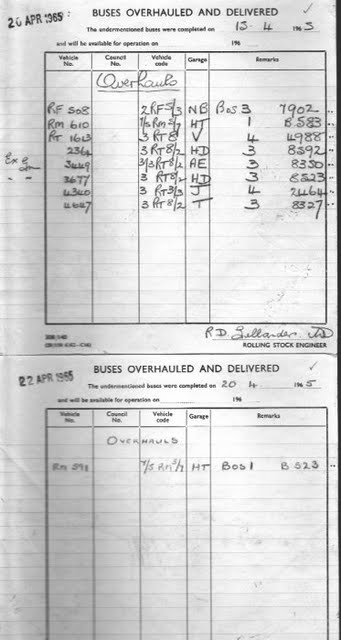 20 APR 1965
BUSES OVERHAULED AND DELIVERED
The undermentioned buses were completed on 15-4 1965
and will be available for operation on 196
Vehicle No. Council No. Vehicle code Garage Remarks
Overhauls
RF 508 2RF5/3 NB Bos 3 7902
RM 610 7/5 RM5/7 HT 1 B 583
RT 1613 3 RT8 V 4 4988
2364 3 RT8/2 HD 3 8592
3449 3/3RT8/2 AE 3 8350
3677 3 RT8/2 HD 3 8523
4340 3 RT3/3 J 4 2464
4647 3 RT8/2 T 3 8327
ROLLING STOCK ENGINEER
22 APR 1965
BUSES OVERHAULED AND DELIVERED
The undermentioned buses were completed on 20 4 1965
and will be available for operation on 196
Vehicle No. Council No. Vehicle code Garage Remarks
OVERHAULS
RM 591 7/5 RM5/7 HT BOS 1 B 523